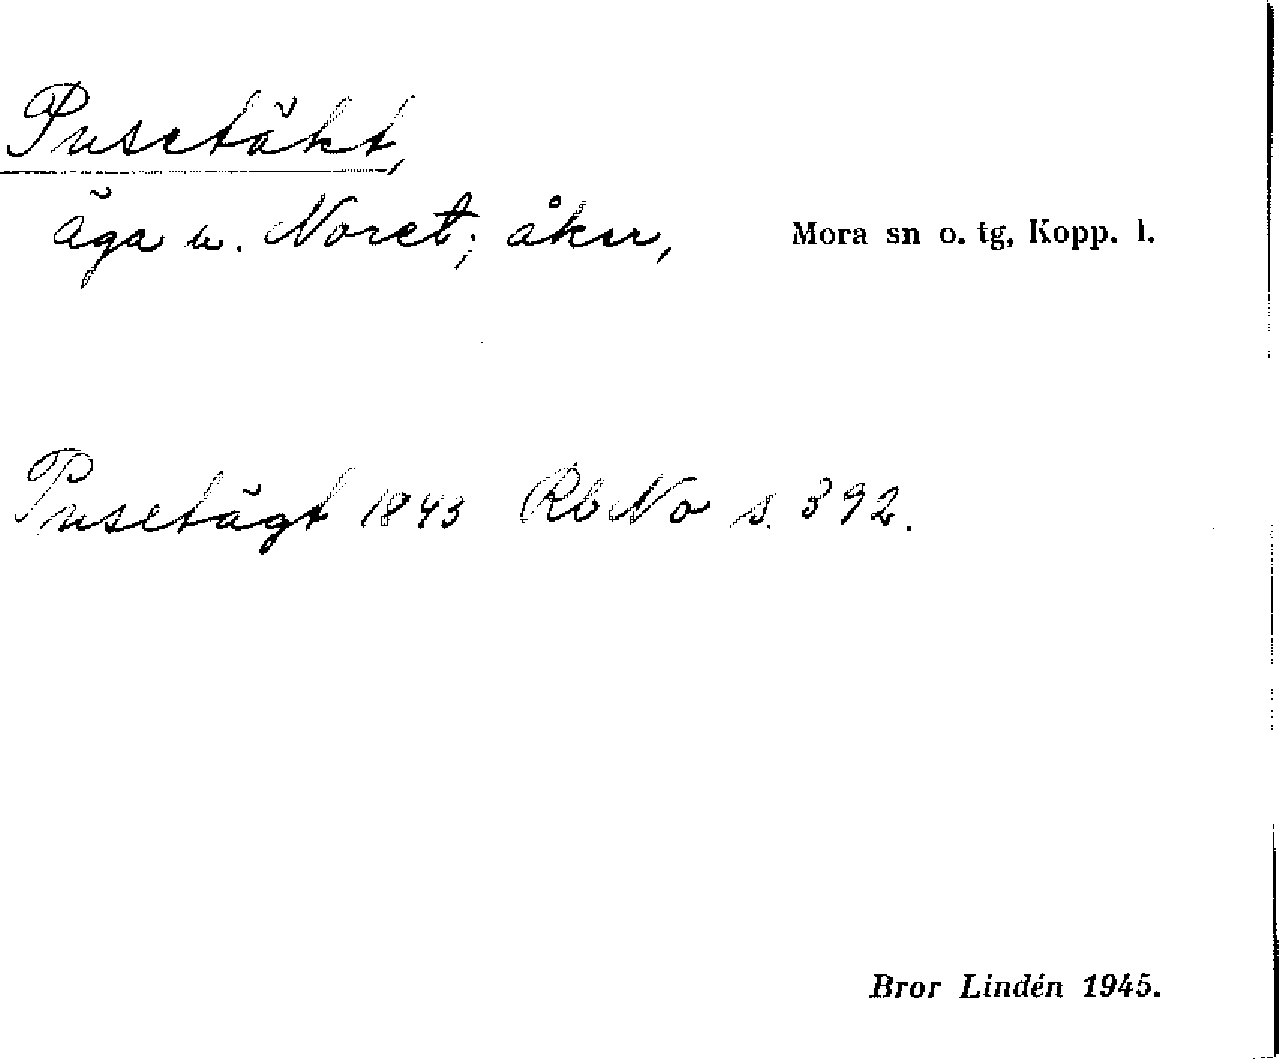 Pusetäkt,
äga u. Noret; åker, Mora sn o. tg, Kopp. l.
Pusetägt 1843 RbNo s. 392.
Bror Lindén 1945.